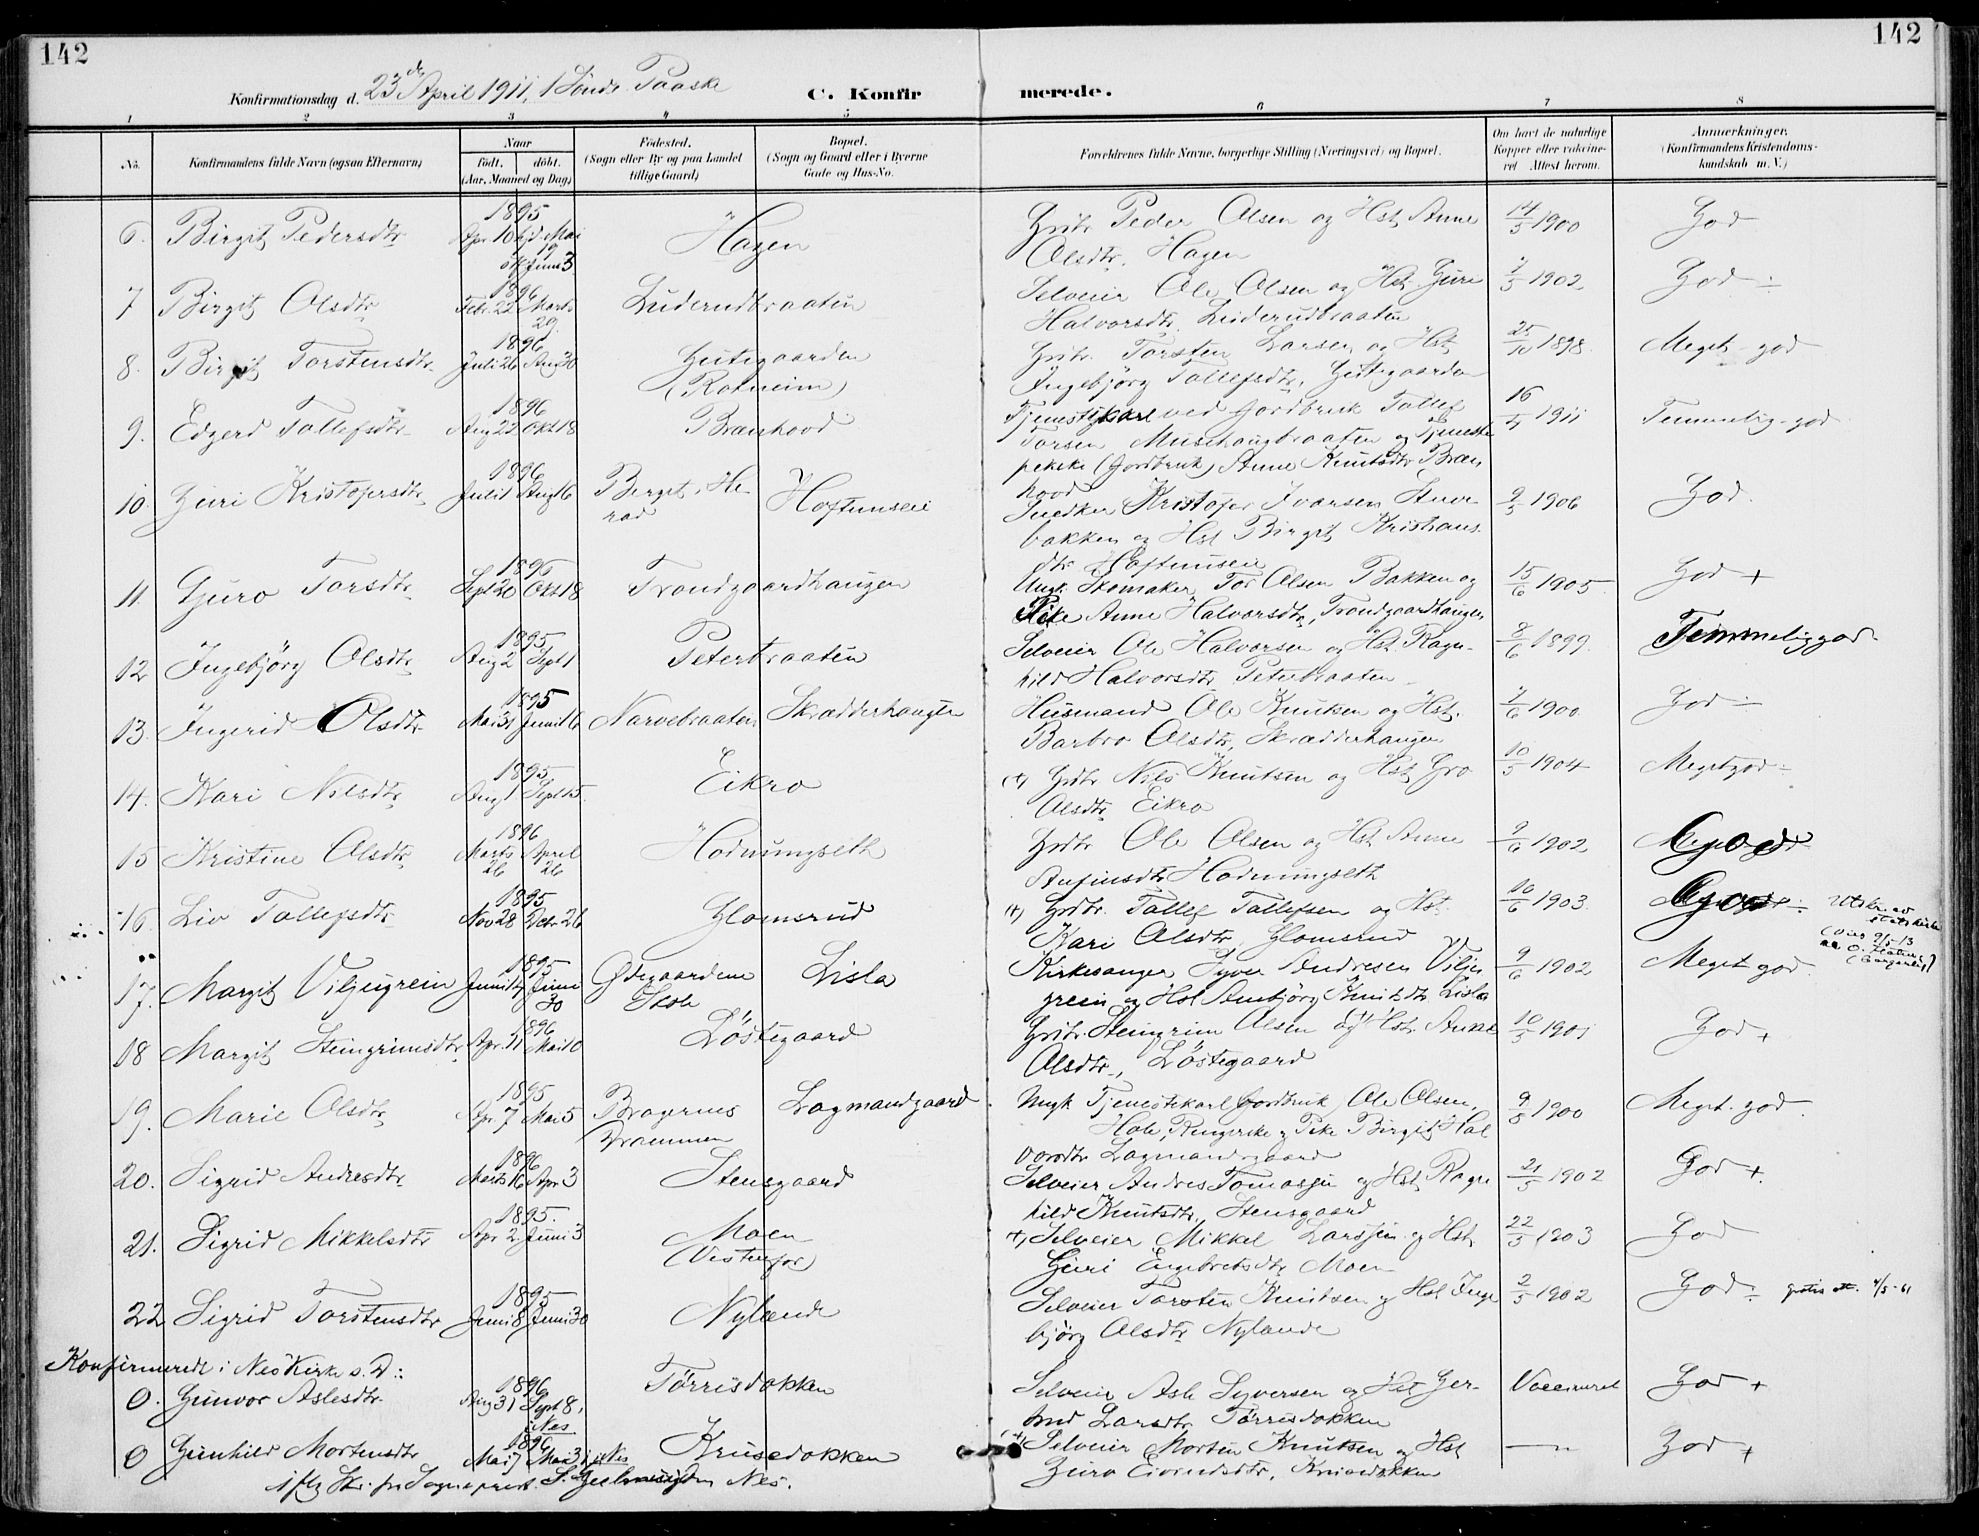 142
142
Konfirmationsdag d. 23de April 1911, 1 Sønd. Paaske
C. Konfirmerede.
1 2 3 4 5 6 7 8
No.
Konfirmandens fulde Navn (ogsaa Efternavn)
Naar
født. døbt.
(Aar, Maaned og Dag)
Fødested.
(Sogn eller By og paa Landet
tillige Gaard)
Bopæl.
(Sogn og Gaard eller i Byerne
Gade og Hus-No.
Forældrenes fulde Navne, borgerlige Stilling (Næringsvei) og Bopæl.
Om havt de naturlige
Kopper eller vaccine-
ret Attest herom.
Anmærkninger.
(Konfirmandens Kristendoms-
kundskab m. V.)
1895
6. Birgit Pedersdtr Apr. 10 Mai 19 Hagen Peder Olsen og Hst. Anne 14/5 1900 God
Juni 3
Olsdtr. Hagen
1896
7 Birgit Olsdtr Febr. 22 Marts 29 Luderudbraaten Selveier Ole Olsen og Hst. Guri 7/5 1902 God
Halvorsdtr. Luderudbraaten
1896
8. Birgit Torstensdtr Juli 26 Aug 30 Gutegaarden Torsten Larsen og Hst. 25/10 1898 Meget god
(Rotneim) Ingebjørg Tollefsdtr, Gutegaarden
1896
9. Edgerd Tollefsdtr Aug 22 Okt 18 Brænhovd Tjenestekarl ved Jordbruk Tollef 16/4 1911 Temmelig god
Torsen Musehaugbraaten og Tjeneste
pike (Jordbruk) Anne Knutsdtr Bræn
hovd
1896
10. Guri Kristofersdtr Juli 1 Aug 16 Berget, He- Hoftunseie Snedker Kristofer Ivarsen Stuve- 9/5 1906 God.
rad bakken og Hst Birgit Kristians
dtr Hoftunseie
1895
11. Guro Torsdtr Sept 20 Okt 18 Trondgaardhaugen Ungk. Skomaker Tor Olsen Bakken og 15/6 1905 God +
Pike Anne Halvorsdtr, Trondgaardhaugen
1895
12 Ingebjørg Olsdtr Aug 2 Sept 1 Peterbraaten Selveier Ole Halvorsen og Hst Ragn- 8/6 1899 Temmelig god
hild Halvorsdtr Peterbraaten
1895
13. Ingerid Olsdtr Mai 31 Juni 16 Narvebraaten Skrædderhaugen Husmand Ole Knutsen og Hst. 7/6 1900 God
Barbro Olsdtr, Skrædderhaugen
1895
14. Kari Nilsdtr Aug 1 Sept 15 Eikro Grdbr. Nils Knutsen og Hst Gro 10/5 1904 Meget god
Olsdtr Eikro
1896
15 Kristine Olsdtr Marts 26 April 26 Hodnungseth Grdbr Ole Olsen og Hst Anne 9/6 1902 God
Anfinsdtr Hodnungseth
1895
16. Liv Tollefsdtr Nov 28 Decr 26 Glomsrud (+) Grdbr. Tollef Tollefsen og Hst. 10/6 1903 God Utskr. av
statskirken
Kari Olsdtr, Glomsrud
1895
17. Margit Viljugrein Juni 14 Juni 30 Ødegaardene Lisla Kirkesanger Syver Andresen Vilju 9/6 1902 Meget god.
Skole grein og Hst Ambjørg Knutsdtr Lisla
1896
18 Margit Steingrimsdtr Apr. 11 Mai 10 Løstegaard Steingrim Olsen og Hst. Anne 10/5 1901 God +
Olsdtr., Løstegaard
1895
19. Marie Olsdtr Apr 7 Mai 5 Bragernes Lagmandgaard Ungk Tjenestekarl (Jordbruk) Ole Olsen, 9/8 1900 Meget god.
Drammen Hole, Ringerike og Pike Birgit Hal
vorsdtr Lagmandsgaard
1896
20. Sigrid Andresdtr Marts 16 Apr 3 Stensgaard Selveier Andres Tomassen og Hst. Ragn 21/5 1902 God +
hild Knutsdtr. Stensgaard
1895.
21. Sigrid Mikkelsdtr Apr 2 Juni 3 Moen (+) Selveier Mikkel Larssen og Hst. 22/5 1903 God
(Vestenfor) Guri Engebretsdtr Moen
1895
22 Sigrid Torstensdtr Juni 8 Juni 30 Nylænde Selveier Torsten Knutsen og Hst Inge 2/5 1902 God gratis att. 4/5-61
bjørg Olsdtr Nylænde
Konfirmerede i Nes Kirke s. D:
1896
0. Gunvor Aslesdtr. Aug 31 Sept 8, Tørrisdokken Selveier Asle Syversen og Hst Ger- Vaccineret God +
i Nes trud Larsdtr Tørrisdokken
1896
0 Gunhild Mortensdtr Mai 7 Mai 31 i Nes Krusedokken (+) Selveier Morten Knutsen og Hst — " — God +
Guro Eivindsdtr, Krusedokken
Nes.